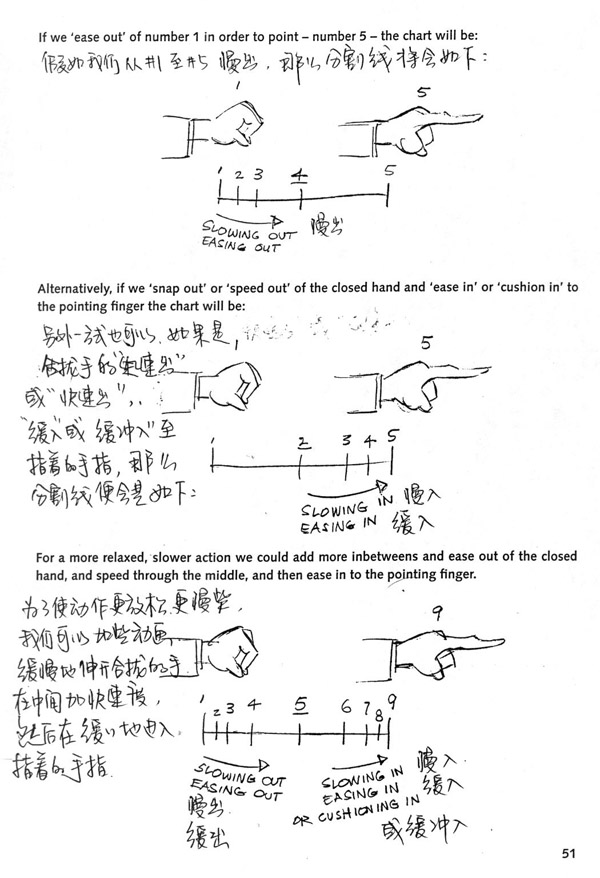 If we 'ease out' of number 1 in order to point – number 5 – the chart will be:
假如我们从#1至#5 慢出, 那么分割线将会如下:
1
5
1 2 3 4 5
SLOWING OUT 慢出
EASING OUT
Alternatively, if we 'snap out' or 'speed out' of the closed hand and 'ease in' or 'cushion in' to
the pointing finger the chart will be:
另外一试也可以, 如果是,
5
或"快速出",
"缓入"或"缓冲入"至
指着的手指, 那么
分割线便会是如下:
1 2 3 4 5
SLOWING IN 慢入
EASING IN 缓入
For a more relaxed, slower action we could add more inbetweens and ease out of the closed
hand, and speed through the middle, and then ease in to the pointing finger.
为了使动作更放松更慢些,
我们可以加些动画,
9
缓慢地伸开合拢的手
在中间加快速度,
然后在缓慢地进入
指着的手指.
1 2 3 4 5 6 7 8 9
SLOWING OUT
EASING OUT
慢出
缓出
SLOWING IN 慢入
EASING IN 缓入
OR CUSHIONING IN
或缓冲入
51